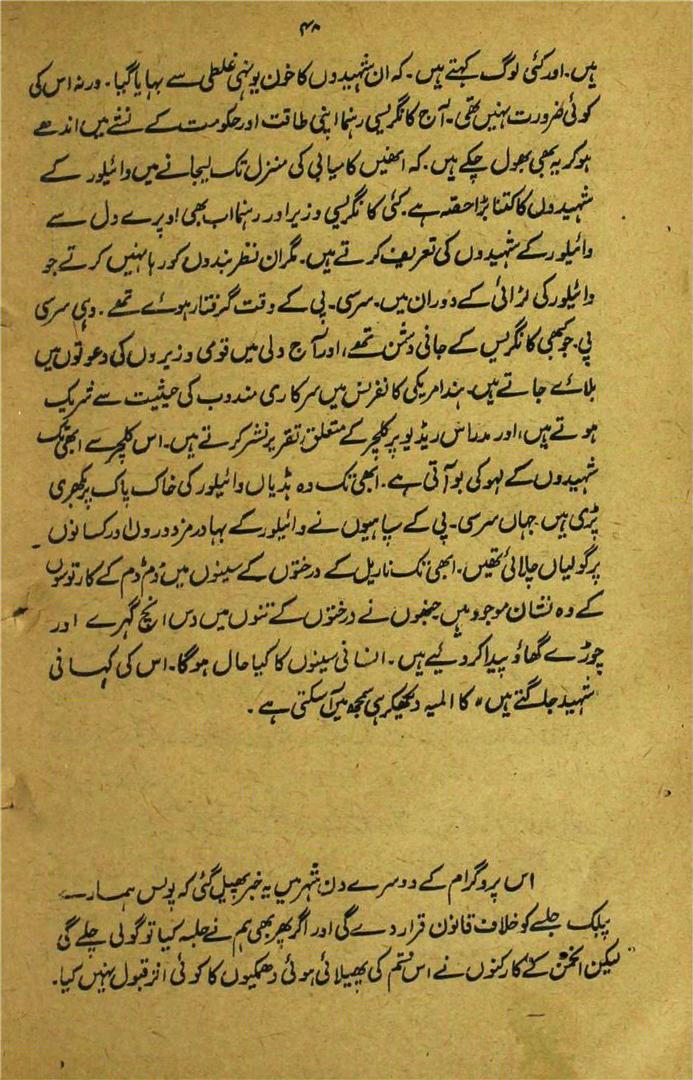 ۴۸
ہیں۔ اور کئی لوگ کہتے ہیں۔ کہ ان شہیدوں کا خون یونہی غلطی سے بہایا گیا۔ ورنہ اس کی
کوئی ضرورت نہیں تھی۔ آج کانگریسی رہنما اپنی طاقت اور حکومت کے نشے میں اندھے
ہو کر یہ بھی بھول چکے ہیں۔ کہ انھیں کامیابی کی منزل تک لیجانے میں وائیلور کے
شہیدوں کا کتنا بڑا حصّہ ہے۔ کئی کانگریسی وزیر اور رہنما اب بھی اوپرے دل سے
وائیلور کے شہیدوں کی تعریف کرتے ہیں۔ مگر ان نظر بندوں کو رہا نہیں کرتے جو
وائیلور کی لڑائی کے دوران میں۔ سر سی۔ پی کے وقت گرفتار ہوئے تھے۔ وہی سر سی
پی۔ جو کبھی کانگریس کے جانی دشمن تھے، اور آج دلی میں قومی وزیروں کی دعوتوں میں
بلائے جاتے ہیں۔ ہند امریکی کانفرنس میں سرکاری مندوب کی حیثیت سے شریک
ہوتے ہیں، اور مدراس ریڈیو پر کلچر کے متعلق تقریر نشر کرتے ہیں۔ اس کلچر سے ابھی تک
شہیدوں کے لہو کی بو آتی ہے۔ ابھی تک وہ ہڈیاں وائیلور کی خاک پاک پر بکھری
پڑی ہیں۔ جہاں سر سی۔ پی کے سپاہیوں نے وائیلور کے بہادر مزدوروں اور کسانوں
پر گولیاں چلائی تھیں۔ ابھی تک ناریل کے درختوں کے سینوں میں دُم دُم کے کارتوسوں
کے وہ نشان موجود ہیں جنھوں نے درختوں کے تنوں میں دس انچ گہرے اور
چوڑے گھاؤ پیدا کر دیئے ہیں۔ انسانی سینوں کا کیا حال ہوگا۔ اس کی کہانی
شہید جاگتے ہیں" کا المیہ دیکھکر ہی سمجھ میں آ سکتی ہے۔
اس پروگرام کے دوسرے دن شہر میں یہ خبر پھیل گئی کہ پولس ہمارے
پبلک جلسے کو خلاف قانون قرار دے گی اور اگر پھر بھی ہم نے جلسہ کیا تو گولی چلے گی
لیکن انجمن کے کارکنوں نے اس قسم کی پھیلائی ہوئی دھمکیوں کا کوئی اثر قبول نہیں کیا۔